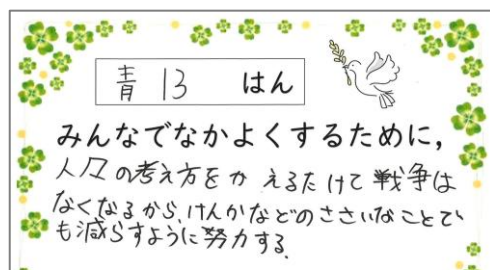 青13 はん
みんなでなかよくするために，
人々の考え方をかえるだけで戦争は
なくなるから、けんかなどのささいなことで
も減らすように努力する。